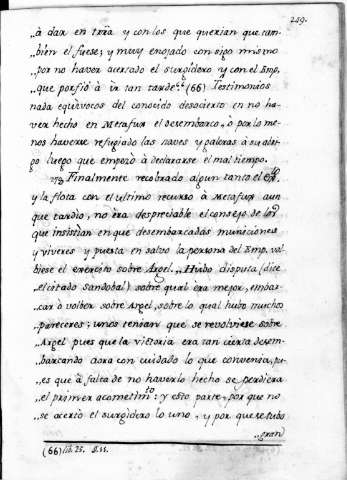 259.
„à dar en trra y con los que querian que tam-
„bien el fuese; y muy enojado consigo mismo
„por no haver acertado el surgidero y con el Emp.
„que porfió à ir tan tarde. (66) Testimonios
nada equivocos del conocido desacierto en no ha-
ver hecho en Metafuz el desembarco, ò por lo me-
nos haverse refugiado las naves y galeras à su abri-
go luego que empezó à declararse el mal tiempo.
273 Finalmente recobrado algun tanto el
y la flota con el ultimo recurso à Metafuz aun
que tardio, no èra despreciable el consejo de los
que insistian en que desembarcadas municiones
y viveres y puesta en salvo la persona del Emp. vol-
biese el exercito sobre Argel. „Hubo disputa (dice
el citado Sandobal) sobre qual era mejor, embar-
car ò volber sobre Argel, sobre lo qual hubo muchos
„pareceres; unos tenian que se revolviese sobre
„Argel pues que la victoria era tan cierta desem-
„barcando aora con cuidado lo que convenia, pu-
„es que à falta de no haverlo hecho se perdiera
„el primer acometimto: y esto parte, por que no
„se acertó el surgidero lo uno, y por que se tubo
„gran
(66) lib. 25. §. 11.